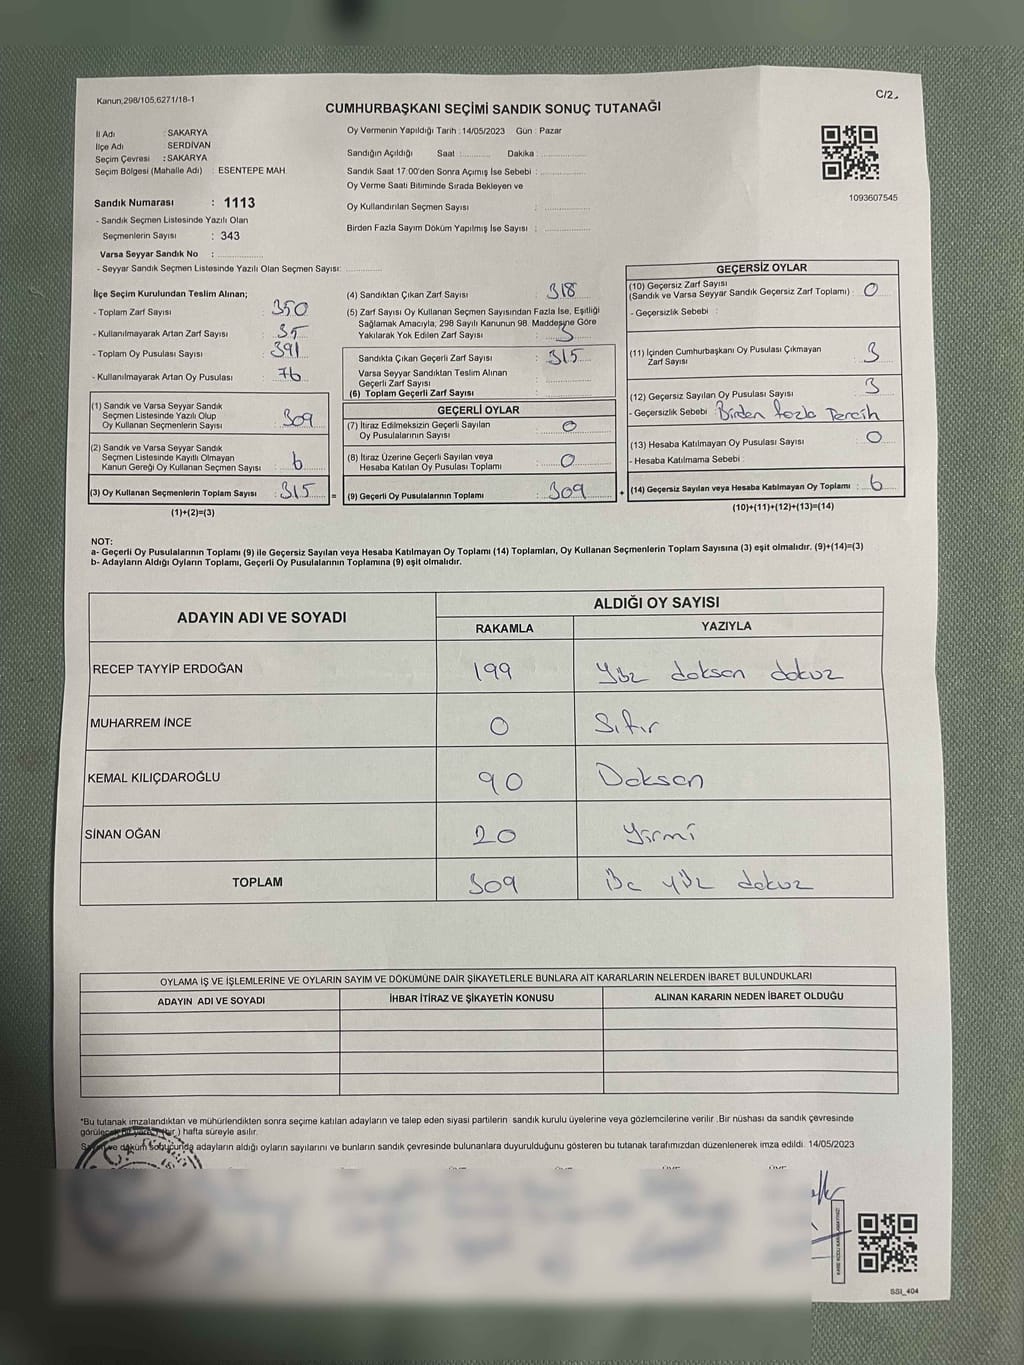 Kanun,298/105,6271/18-1
C/2
CUMHURBAŞKANI SEÇİMİ SANDIK SONUÇ TUTANAĞI
İl Adı : SAKARYA
İlçe Adı : SERDİVAN
Seçim Çevresi : SAKARYA
Seçim Bölgesi (Mahalle Adı) : ESENTEPE MAH
Sandık Numarası : 1113
- Sandık Seçmen Listesinde Yazılı Olan
Seçmenlerin Sayısı : 343
Varsa Seyyar Sandık No :
- Seyyar Sandık Seçmen Listesinde Yazılı Olan Seçmen Sayısı:
Oy Vermenin Yapıldığı Tarih : 14/05/2023 Gün : Pazar
Sandığın Açıldığı Saat : Dakika :
Sandık Saat 17.00'den Sonra Açımış İse Sebebi :
Oy Verme Saati Bitiminde Sırada Bekleyen ve
Oy Kullandırılan Seçmen Sayısı :
Birden Fazla Sayım Döküm Yapılmış İse Sayısı :
1093607545
İlçe Seçim Kurulundan Teslim Alınan;
- Toplam Zarf Sayısı : 350
- Kullanılmayarak Artan Zarf Sayısı : 35
- Toplam Oy Pusulası Sayısı : 391
- Kullanılmayarak Artan Oy Pusulası : 76
(1) Sandık ve Varsa Seyyar Sandık
Seçmen Listesinde Yazılı Olup
Oy Kullanan Seçmenlerin Sayısı : 309
(2) Sandık ve Varsa Seyyar Sandık
Seçmen Listesinde Kayıtlı Olmayan
Kanun Gereği Oy Kullanan Seçmen Sayısı : 6
(3) Oy Kullanan Seçmenlerin Toplam Sayısı : 315 =
(1)+(2)=(3)
(4) Sandıktan Çıkan Zarf Sayısı : 318
(5) Zarf Sayısı Oy Kullanan Seçmen Sayısından Fazla İse, Eşitliği
Sağlamak Amacıyla, 298 Sayılı Kanunun 98. Maddesine Göre
Yakılarak Yok Edilen Zarf Sayısı : 3
Sandıkta Çıkan Geçerli Zarf Sayısı : 315
Varsa Seyyar Sandıktan Teslim Alınan
Geçerli Zarf Sayısı :
(6) Toplam Geçerli Zarf Sayısı :
GEÇERLİ OYLAR
(7) İtiraz Edilmeksizin Geçerli Sayılan
Oy Pusulalarının Sayısı : 0
(8) İtiraz Üzerine Geçerli Sayılan veya
Hesaba Katılan Oy Pusulası Toplamı : 0
(9) Geçerli Oy Pusulalarının Toplamı : 309 +
GEÇERSİZ OYLAR
(10) Geçersiz Zarf Sayısı
(Sandık ve Varsa Seyyar Sandık Geçersiz Zarf Toplamı) : 0
- Geçersizlik Sebebi :
(11) İçinden Cumhurbaşkanı Oy Pusulası Çıkmayan
Zarf Sayısı : 3
(12) Geçersiz Sayılan Oy Pusulası Sayısı : 3
- Geçersizlik Sebebi : Birden fazla Tercih
(13) Hesaba Katılmayan Oy Pusulası Sayısı : 0
- Hesaba Katılmama Sebebi :
(14) Geçersiz Sayılan veya Hesaba Katılmayan Oy Toplamı : 6
(10)+(11)+(12)+(13)=(14)
NOT:
a- Geçerli Oy Pusulalarının Toplamı (9) ile Geçersiz Sayılan veya Hesaba Katılmayan Oy Toplamı (14) Toplamları, Oy Kullanan Seçmenlerin Toplam Sayısına (3) eşit olmalıdır. (9)+(14)=(3)
b- Adayların Aldığı Oyların Toplamı, Geçerli Oy Pusulalarının Toplamına (9) eşit olmalıdır.
ADAYIN ADI VE SOYADI
ALDIĞI OY SAYISI
RAKAMLA YAZIYLA
RECEP TAYYİP ERDOĞAN 199 Yüz doksan dokuz
MUHARREM İNCE 0 Sıfır
KEMAL KILIÇDAROĞLU 90 Doksan
SİNAN OĞAN 20 Yirmi
TOPLAM 309 Üç yüz dokuz
OYLAMA İŞ VE İŞLEMLERİNE VE OYLARIN SAYIM VE DÖKÜMÜNE DAİR ŞİKAYETLERLE BUNLARA AİT KARARLARIN NELERDEN İBARET BULUNDUKLARI
ADAYIN ADI VE SOYADI İHBAR İTİRAZ VE ŞİKAYETİN KONUSU ALINAN KARARIN NEDEN İBARET OLDUĞU
*Bu tutanak imzalandıktan ve mühürlendikten sonra seçime katılan adayların ve talep eden siyasi partilerin sandık kurulu üyelerine veya gözlemcilerine verilir .Bir nüshası da sandık çevresinde
görülecek bir yere (bir.) hafta süreyle asılır.
Sayım ve döküm sonucunda adayların aldığı oyların sayılarını ve bunların sandık çevresinde bulunanlara duyurulduğunu gösteren bu tutanak tarafımızdan düzenlenerek imza edildi. 14/05/2023
SSI_404